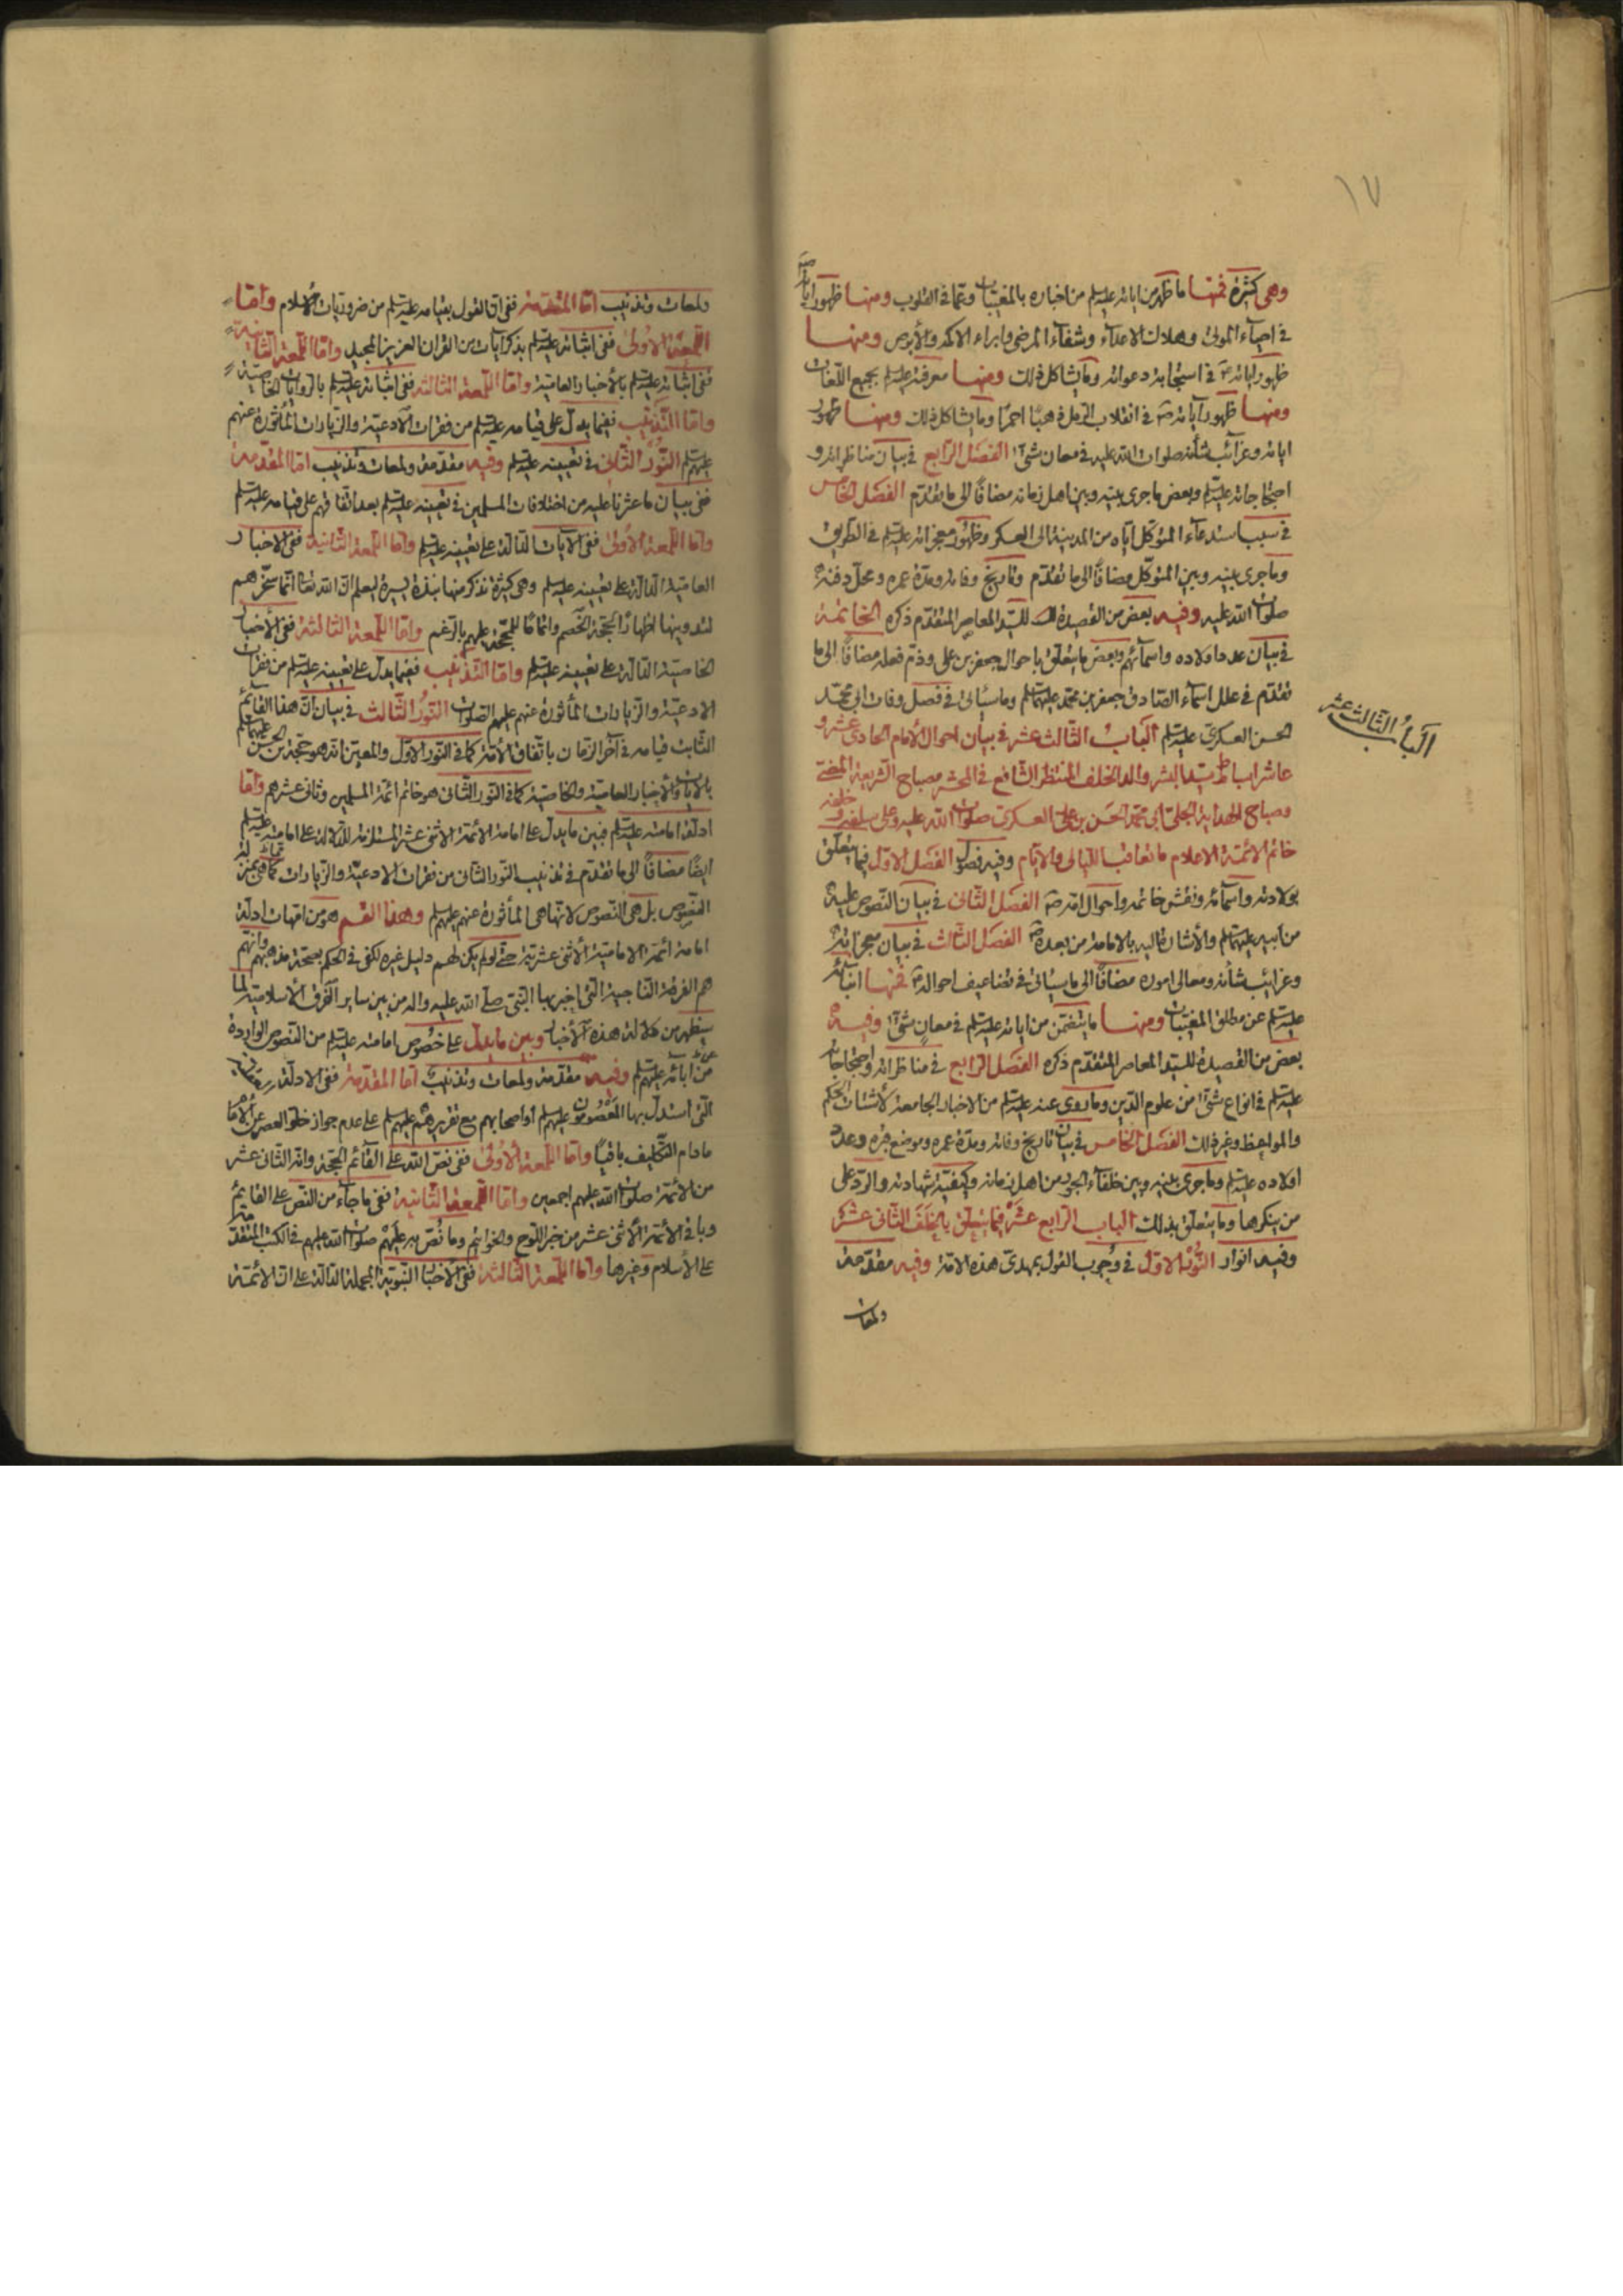 ١٧
وهى كثيرة فمنها ما ظهر من اياته عليه السلم من اخباره بالمغيبات وعما فى القلوب ومنها ظهور اياته
فى احياء الموتى وهلاك الاعداء وشفاء المرضى وابراء الاكمه والأبرص ومنها
ظهور اياته فى استجابة دعواته وما يشاكل ذلك ومنها معرفته عليه السلم بجميع اللغات
ومنها ظهور آياته فى انقلاب الرمل ذهبًا احمرًا وما يشاكل ذلك ومنها ظهور
اياته وغرائب شأنه صلوات الله عليه فى معان شتى الفصل الرابع فى بيان مناظراته و
احتجاجاته عليه السلم وبعض ما جرى بينه وبين اهل زمانه مضافًا الى ما يقدم الفصل الخامس
فى سبب استدعاء المتوكل اياه من المدينة الى العسكر وظهور معجزاته عليه السلم فى الطريق
وما جرى بينه وبين المتوكل مضافًا الى ما تقدم وتاريخ وفاته ومدة عمره ومحل دفنه
صلوات الله عليه وفيه بعض من القصيدة للسيد المعاصر المتقدم ذكره الخاتمة
فى بيان عدد اولاده واسمائهم وبعض ما يتعلق باحوال جعفر بن على وذم فعله مضافًا الى ما
تقدم فى علل اسماء الصادق جعفر بن محمد عليهما السلم وما سيأتى فى فصل وفات ابى محمد
الحسن العسكرى عليه السلم الباب الثالث عشر فى بيان احوال الأمام الحادى عشر و
الباب الثالث عشر
عاشر اسباط سيد البشر والد الخلف المنتظر الشافع فى المحشر مصباح الشريعة المضئ
ومصباح الهداية الجلى ابى محمد الحسن بن على العسكرى صلوات الله عليه وعلى سلفه و خلفه
خاتم الائمة الاعلام ما تعاقب الليالى والايام وفيه فصول الفصل الاول فيما يتعلق
بولادته واسمائه ونقش خاتمه واحوال امه الفصل الثانى فى بيان النصوص عليه
من ابيه عليهما السلم والأشارة اليه بالامامة من بعده الفصل الثالث فى بيان معجزاته
وغرائب شأنه ومعالى اموره مضافًا الى ما سيأتى فى تضاعيف احواله فمنها انبائه
عليه السلم عن مطلق المغيبات ومنها ما يتضمن من اياته عليه السلم فى معان شتى وفيه
بعض من القصيدة للسيد المعاصر المتقدم ذكره الفصل الرابع فى مناظراته واحتجاجاته
عليه السلم فى انواع شتى من علوم الدين وما روى عنه عليه السلم من الاخبار الجامعة لأشتات الحكم
والمواعظ وغير ذلك الفصل الخامس فى بيان تاريخ وفاته ومدة عمره وموضع قبره وعدد
اولاده عليه السلم وما جرى بينه وبين خلفاء الجور من اهل زمانه وكيفية شهادته والرد على
من ينكرها وما يتعلق بذلك الباب الرابع عشر فيما يتعلق بالخلف الثانى عشر
وفيه انوار النور الاول فى وجوب القول بمهدى هذه الامة وفيه مقدمة
ولمعات
ولمعات وتذنيب اما المقدمة ففى ان القول بقيامه عليه السلم من ضروريات الأسلام واما
اللمعة الاولى ففى اثباته عليه السلم بذكر آيات من القران العزيز المجيد واما اللمعة الثانية
ففى اثباته عليه السلم بالأخبار العامية واما اللمعة الثالثة ففى اثباته عليه السلم بالروايات الخاصية
واما التذنيب ففيما يدل على قيامه عليه السلم من فقرات الأدعية والزيارات المأثورة عنهم
عليهم السلم النور الثانى فى تعيينه عليه السلم وفيه مقدمة ولمعات وتذنيب اما المقدمة
ففى بيان ما عثرنا عليه من اختلافات المسلمين فى تعيينه عليه السلم بعد اتفاقهم على قيامه عليه السلم
واما اللمعة الاولى ففى الآيات الدالة على تعيينه عليه السلم واما اللمعة الثانية ففى الاخبار
العامية الدالة على تعيينه عليه السلم وهى كثيرة نذكر منها نبذة يسيرة ليعلم ان الله تعالى انما سخرهم
لتدوينها اظهارًا لحجة الخصم واتمامًا للحجة عليهم بالرغم واما اللمعة الثالثة ففى الأخبار
الخاصية الدالة على تعيينه عليه السلم واما التذنيب ففيما يدل على تعيينه عليه السلم من فقرات
الادعية والزيارات المأثورة عنهم عليهم الصلوات النور الثالث فى بيان ان هذا القائم
الثابت قيامه فى آخر الزمان باتفاق الأمة كما فى النور الاول والمعين انه هو حجة بن الحسن عليهما السلم
بالايات والأخبار العامية والخاصية كما فى النور الثانى هو خاتم ائمة المسلمين وثانى عشرهم واما
ادلة امامته عليه السلم فبين ما يدل على امامة الأئمة الاثنى عشر المستلزمة للدلالة على امامته عليه السلم
ايضًا مضافًا الى ما تقدم فى تذنيب النور الثانى من فقرات الادعية والزيارات
النصوص بل هى النصوص لانها هى المأثورة عنهم عليهم السلم وهذا القسم هو من امهات ادلة
امامة ائمة الامامية الأثنى عشرية حتى لو لم يكن لهم دليل غيره لكفى فى الحكم بصحة مذهبهم وانهم
هم الفرقة الناجية التى اخبر بها النبى صلى الله عليه واله من بين ساير الفرق الأسلامية لما
سيظهر من دلالة هذه الأخبار وبين ما يدل على خصوص امامته عليه السلم من النصوص الواردة
من ابائه عليهم السلم وفيه مقدمة ولمعات وتذنيب اما المقدمة ففى الادلة
التى استدل بها المعصومون عليهم السلم او اصحابهم مع تقريرهم عليهم السلم على عدم جواز خلو العصر عن الامام
ما دام التكليف باقيًا واما اللمعة الأولى ففى نص الله على القائم الحجة وانه الثانى عشر
من الأئمة صلوات الله عليهم اجمعين واما اللمعة الثانية ففى ما جاء من النص على القائم
وباقى الأئمة الأثنى عشر من خبر اللوح والخواتيم وما نص به عليهم صلوات الله عليهم فى الكتب المتقدمة
على الأسلام وغيرها واما اللمعة الثالثة ففى الاخبار النبوية المجملة الدالة على ان الأئمة